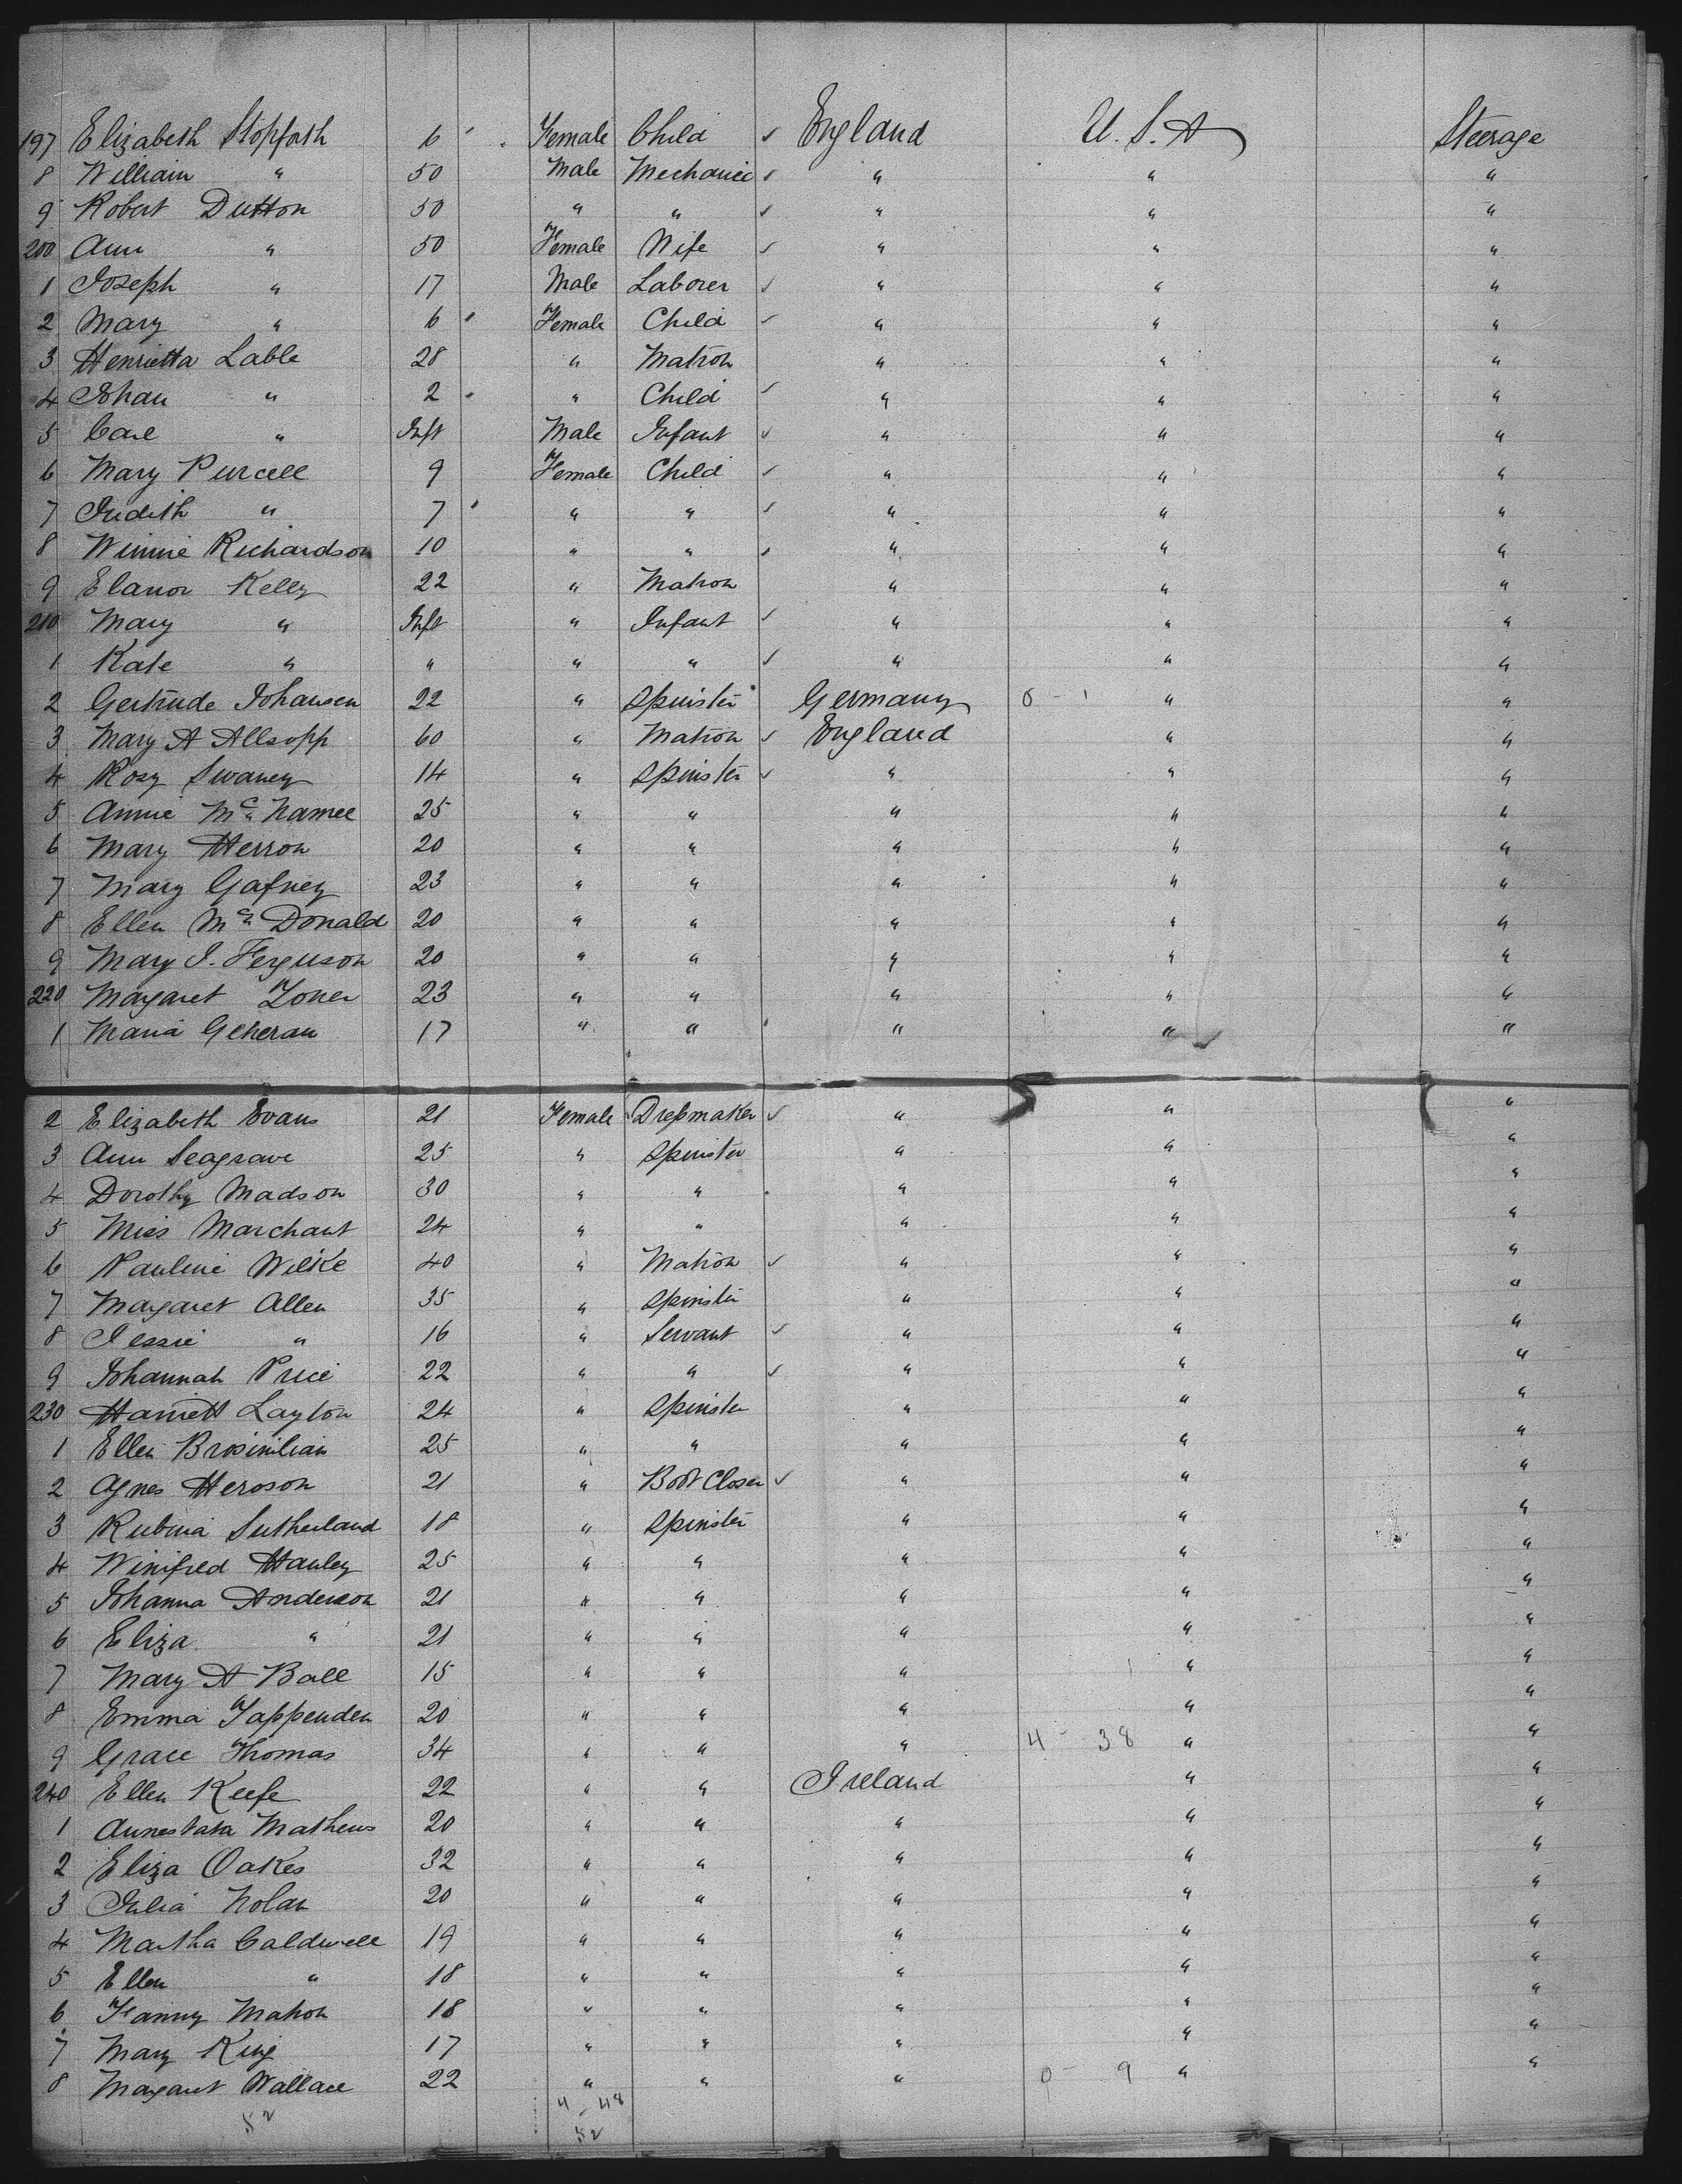 197 Elizabeth Stopforth 6 Female Child ✓ England U.S.A Steerage
8 William " 50 Male Mechanic ✓ " " "
9 Robert Dutton 50 " " ✓ " " "
200 Ann " 50 Female Wife ✓ " " "
1 Joseph " 17 Male Laborer ✓ " " "
2 Mary " 6 Female Child ✓ " " "
3 Henrietta Lable 28 " Matron " " "
4 Johan " 2 " Child ✓ " " "
5 Carl " Inft Male Infant ✓ " " "
6 Mary Purcell 9 Female Child ✓ " " "
7 Judith " 7 " " ✓ " " "
8 Winnie Richardson 10 " " ✓ " " "
9 Elanor Kelly 22 " Matron " " "
210 Mary " Inft " Infant ✓ " " "
1 Kate " " " " ✓ " " "
2 Gertrude Johansen 22 " Spinster Germany 0 - 1 " "
3 Mary A Allsopp 60 " Matron ✓ England " "
4 Rosy Swaney 14 " Spinster ✓ " " "
5 Annie McNamee 25 " " " " "
6 Mary Herron 20 " " " " "
7 Mary Gafney 23 " " " " "
8 Ellen McDonald 20 " " " " "
9 Mary J. Ferguson 20 " " " " "
220 Margaret Zoner 23 " " " " "
1 Maria Geheran 17 " " " " "
2 Elizabeth Evans 21 Female Dressmaker ✓ " " "
3 Ann Seagrave 25 " Spinster " " "
4 Dorothy Madson 30 " " " " "
5 Miss Marchant 24 " " " " "
6 Pauline Wilke 40 " Matron ✓ " " "
7 Margaret Allen 35 " Spinster " " "
8 Jessie " 16 " Servant ✓ " " "
9 Johannah Price 22 " " ✓ " " "
230 Harriett Layton 24 " Spinster " " "
1 Ellen 25 " " " " "
2 Agnes Heroson 21 " Boot Closer ✓ " " "
3 Rubina Sutherland 18 " Spinster " " "
4 Winifred Hanley 25 " " " " "
5 Johanna Anderson 21 " " " " "
6 Eliza " 21 " " " " "
7 Mary A Ball 15 " " " " "
8 Emma Tappenden 20 " " " " "
9 Grace Thomas 34 " " " 4 - 38 " "
240 Ellen Keefe 22 " " Ireland " "
1 Annestata Mathews 20 " " " " "
2 Eliza Oakes 32 " " " " "
3 Julia Nolan 20 " " " " "
4 Martha Caldwell 19 " " " " "
5 Ellen " 18 " " " " "
6 Fanny Mahon 18 " " " " "
7 Mary King 17 " " " " "
8 Margaret Wallace 22 " " " 0 - 9 " "
4 - 48
52 52